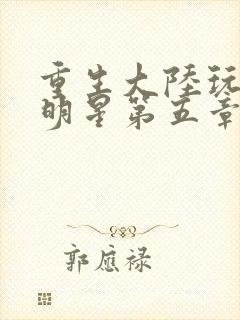 重生大陸玩
明星第五章
郭應祿